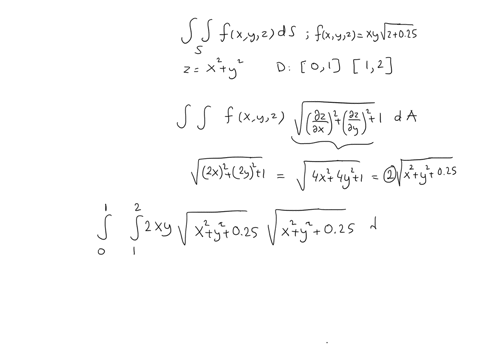 ∫∫_S f(x,y,z) dS ; f(x,y,z) = xy√(z+0.25)
z = x²+y² D: [0,1] [1,2]
∫∫ f(x,y,z) √((∂z/∂x)²+(∂z/∂y)²+1) dA
√((2x)²+(2y)²+1) = √(4x²+4y²+1) = 2√(x²+y²+0.25)
∫₀¹ ∫₁² 2xy √(x²+y²+0.25) √(x²+y²+0.25) d